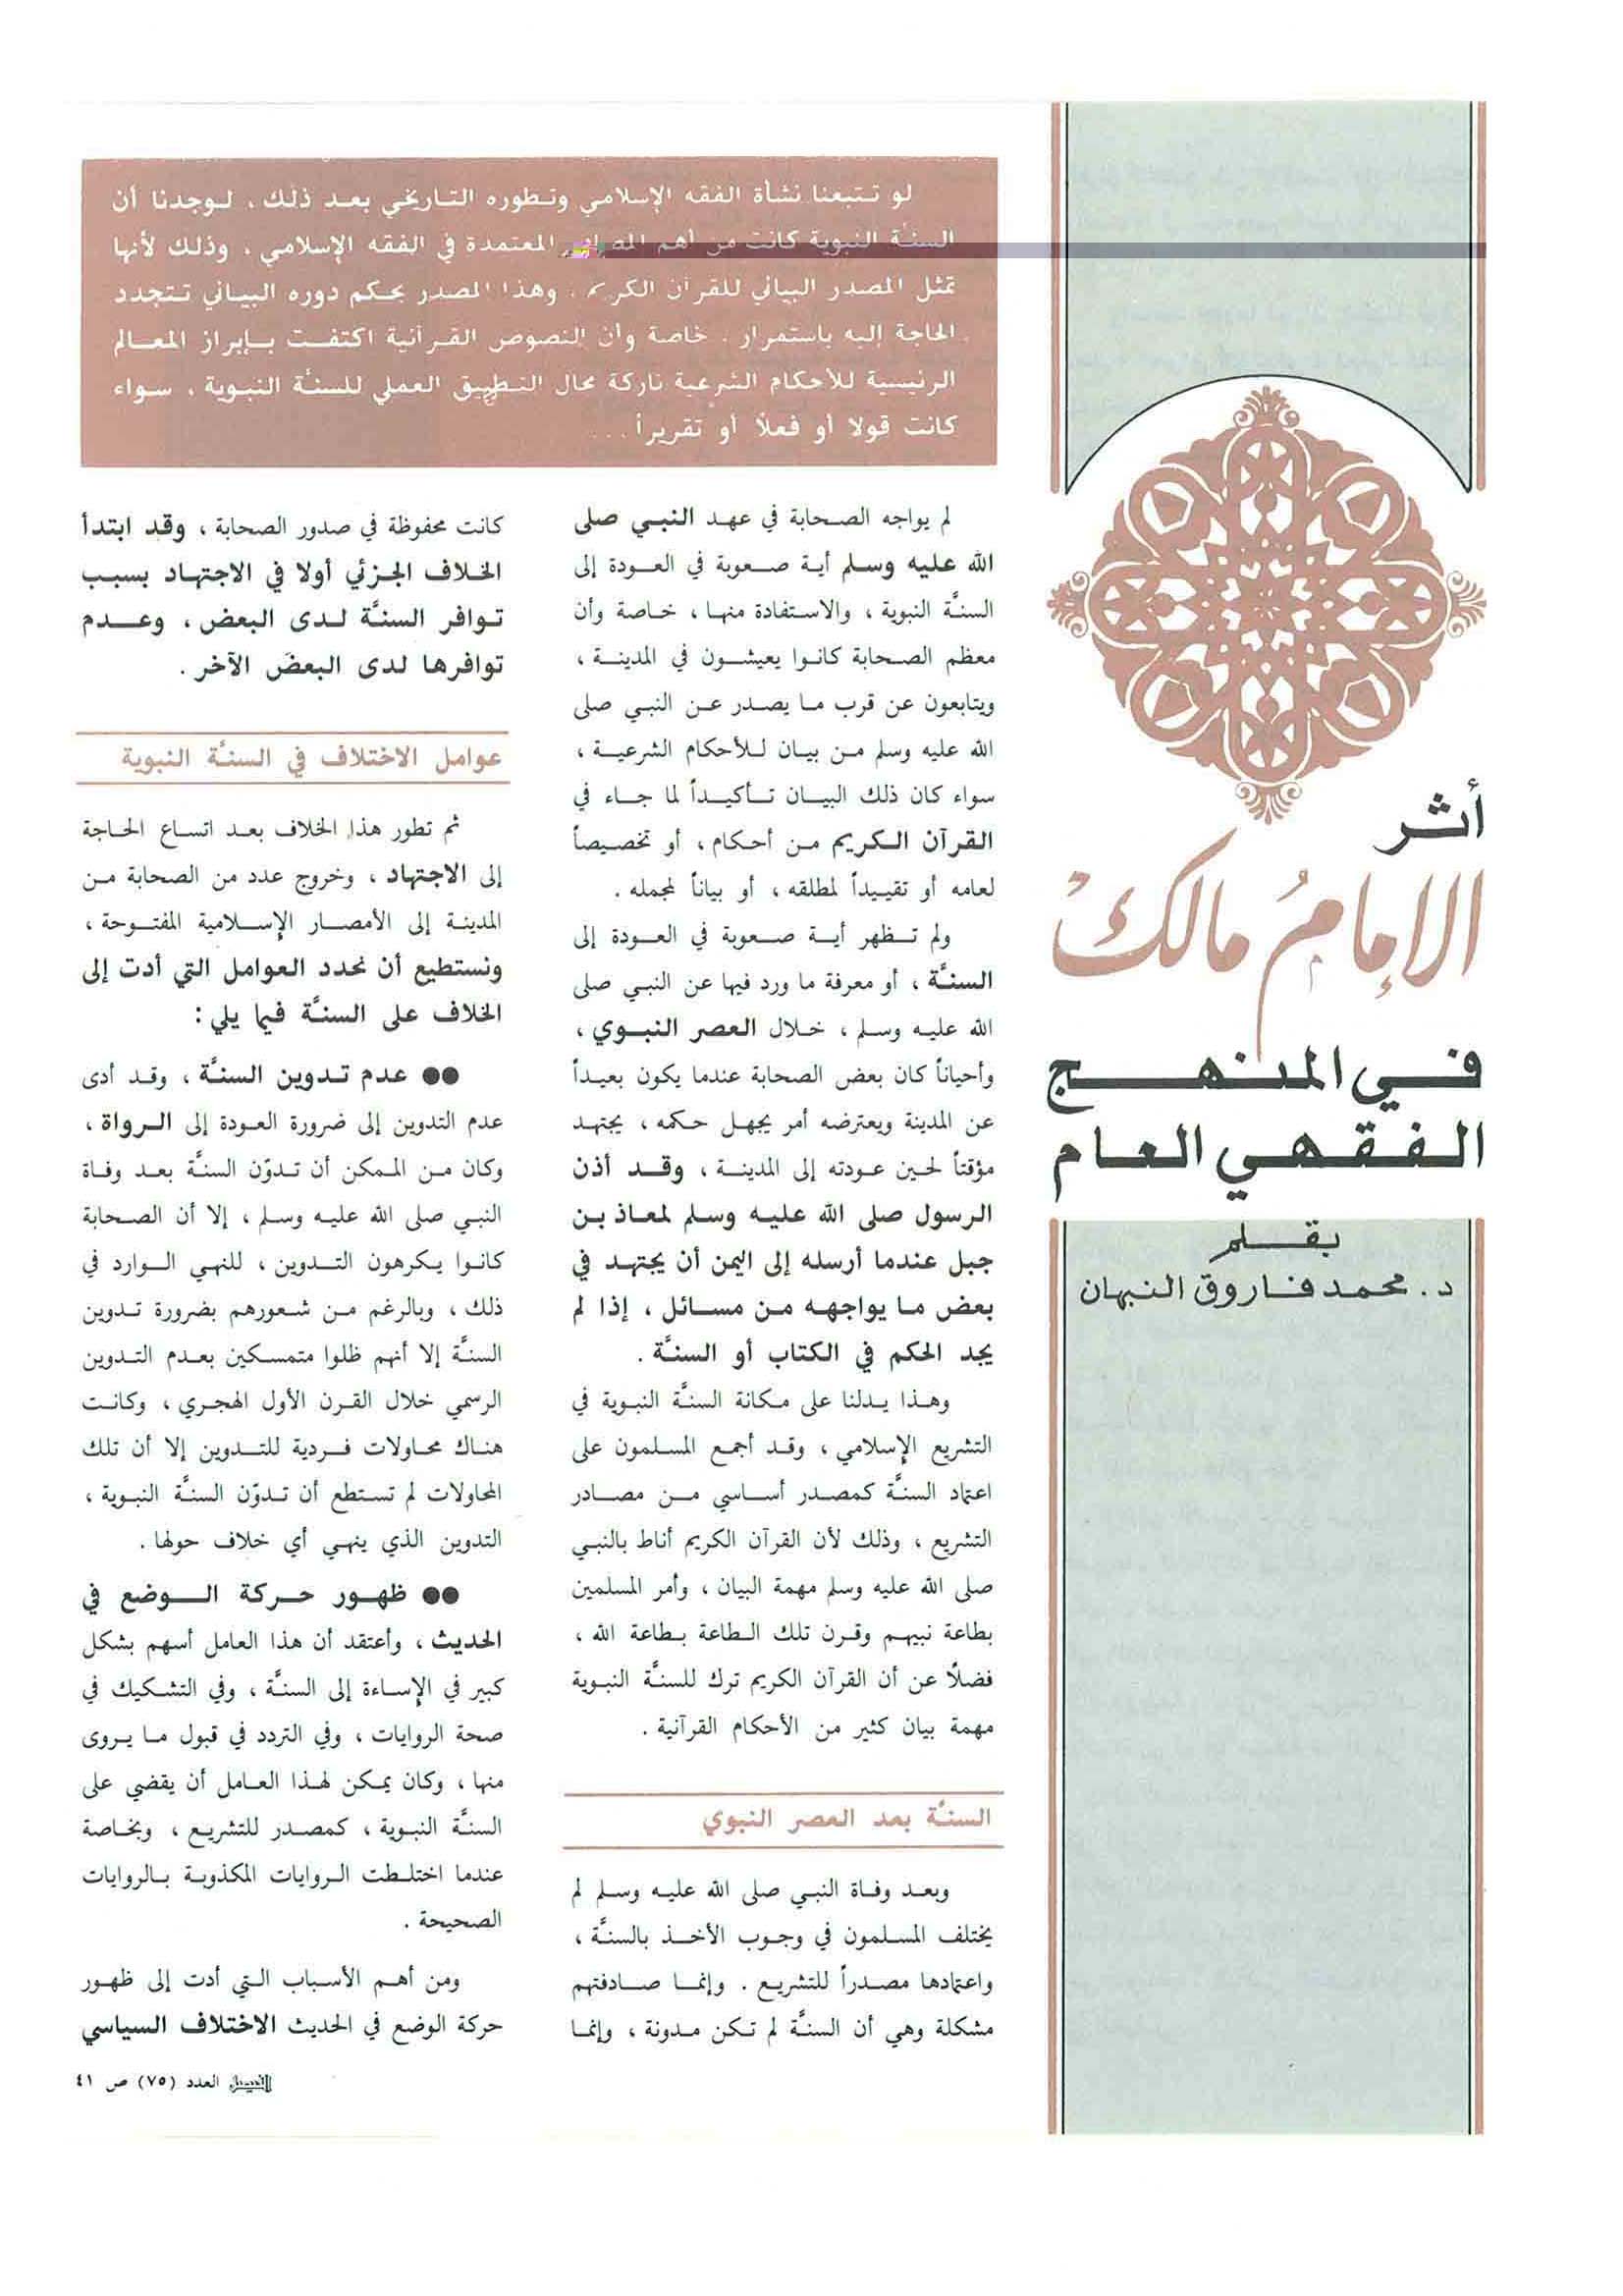 أثر
الإمام مالك
في المنهج
الفقهي العام
بقلم
د. محمد فاروق النبهان
لو تتبعنا نشأة الفقه الإسلامي وتطوره التاريخي بعد ذلك ، لوجدنا أن
السنة النبوية كانت من أهم المصادر المعتمدة في الفقه الإسلامي ، وذلك لأنها
تمثل المصدر البياني للقرآن الكريم ، وهذا المصدر بحكم دوره البياني تتجدد
الحاجة إليه باستمرار ، خاصة وأن النصوص القرآنية اكتفت بإبراز المعالم
الرئيسية للأحكام الشرعية تاركة مجال التطبيق العملي للسنة النبوية ، سواء
كانت قولا أو فعلاً أو تقريراً ...
لم يواجه الصحابة في عهد النبي صلى
الله عليه وسلم أية صعوبة في العودة إلى
السنَّة النبوية ، والاستفادة منها ، خاصة وأن
معظم الصحابة كانوا يعيشون في المدينة ،
ويتابعون عن قرب ما يصدر عن النبي صلى
الله عليه وسلم من بيان للأحكام الشرعية ،
سواء كان ذلك البيان تأكيداً لما جاء في
القرآن الكريم من أحكام ، أو تخصيصاً
لعامه أو تقييداً لمطلقه ، أو بياناً لمجمله .
ولم تظهر أية صعوبة في العودة إلى
السنَّة ، أو معرفة ما ورد فيها عن النبي صلى
الله عليه وسلم ، خلال العصر النبوي ،
وأحياناً كان بعض الصحابة عندما يكون بعيداً
عن المدينة ويعترضه أمر يجهل حكمه ، يجتهد
مؤقتاً لحين عودته إلى المدينة ، وقد أذن
الرسول صلى الله عليه وسلم لمعاذ بن
جبل عندما أرسله إلى اليمن أن يجتهد في
بعض ما يواجهه من مسائل ، إذا لم
يجد الحكم في الكتاب أو السنَّة .
وهذا يدلنا على مكانة السنَّة النبوية في
التشريع الإسلامي ، وقد أجمع المسلمون على
اعتماد السنَّة كمصدر أساسي من مصادر
التشريع ، وذلك لأن القرآن الكريم أناط بالنبي
صلى الله عليه وسلم مهمة البيان ، وأمر المسلمين
بطاعة نبيهم وقرن تلك الطاعة بطاعة الله ،
فضلاً عن أن القرآن الكريم ترك للسنَّة النبوية
مهمة بيان كثير من الأحكام القرآنية .
السنَّة بعد العصر النبوي
وبعد وفاة النبي صلى الله عليه وسلم لم
يختلف المسلمون في وجوب الأخذ بالسنَّة ،
واعتمادها مصدراً للتشريع . وإنما صادفتهم
مشكلة وهي أن السنَّة لم تكن مدونة ، وإنما
كانت محفوظة في صدور الصحابة ، وقد ابتدأ
الخلاف الجزئي أولا في الاجتهاد بسبب
توافر السنَّة لدى البعض ، وعدم
توافرها لدى البعض الآخر .
عوامل الاختلاف في السنَّة النبوية
ثم تطور هذا الخلاف بعد اتساع الحاجة
إلى الاجتهاد ، وخروج عدد من الصحابة من
المدينة إلى الأمصار الإسلامية المفتوحة ،
ونستطيع أن نحدد العوامل التي أدت إلى
الخلاف على السنَّة فيما يلي :
●● عدم تدوين السنَّة ، وقد أدى
عدم التدوين إلى ضرورة العودة إلى الرواة ،
وكان من الممكن أن تدوّن السنَّة بعد وفاة
النبي صلى الله عليه وسلم ، إلا أن الصحابة
كانوا يكرهون التدوين ، للنهي الوارد في
ذلك ، وبالرغم من شعورهم بضرورة تدوين
السنَّة إلا أنهم ظلوا متمسكين بعدم التدوين
الرسمي خلال القرن الأول الهجري ، وكانت
هناك محاولات فردية للتدوين إلا أن تلك
المحاولات لم تستطع أن تدوّن السنَّة النبوية ،
التدوين الذي ينهي أي خلاف حولها .
●● ظهور حركة الوضع في
الحديث ، وأعتقد أن هذا العامل أسهم بشكل
كبير في الإساءة إلى السنَّة ، وفي التشكيك في
صحة الروايات ، وفي التردد في قبول ما يروى
منها ، وكان يمكن لهذا العامل أن يقضي على
السنَّة النبوية ، كمصدر للتشريع ، وبخاصة
عندما اختلطت الروايات المكذوبة بالروايات
الصحيحة .
ومن أهم الأسباب التي أدت إلى ظهور
حركة الوضع في الحديث الاختلاف السياسي
الفيصل العدد (٧٥) ص ٤١